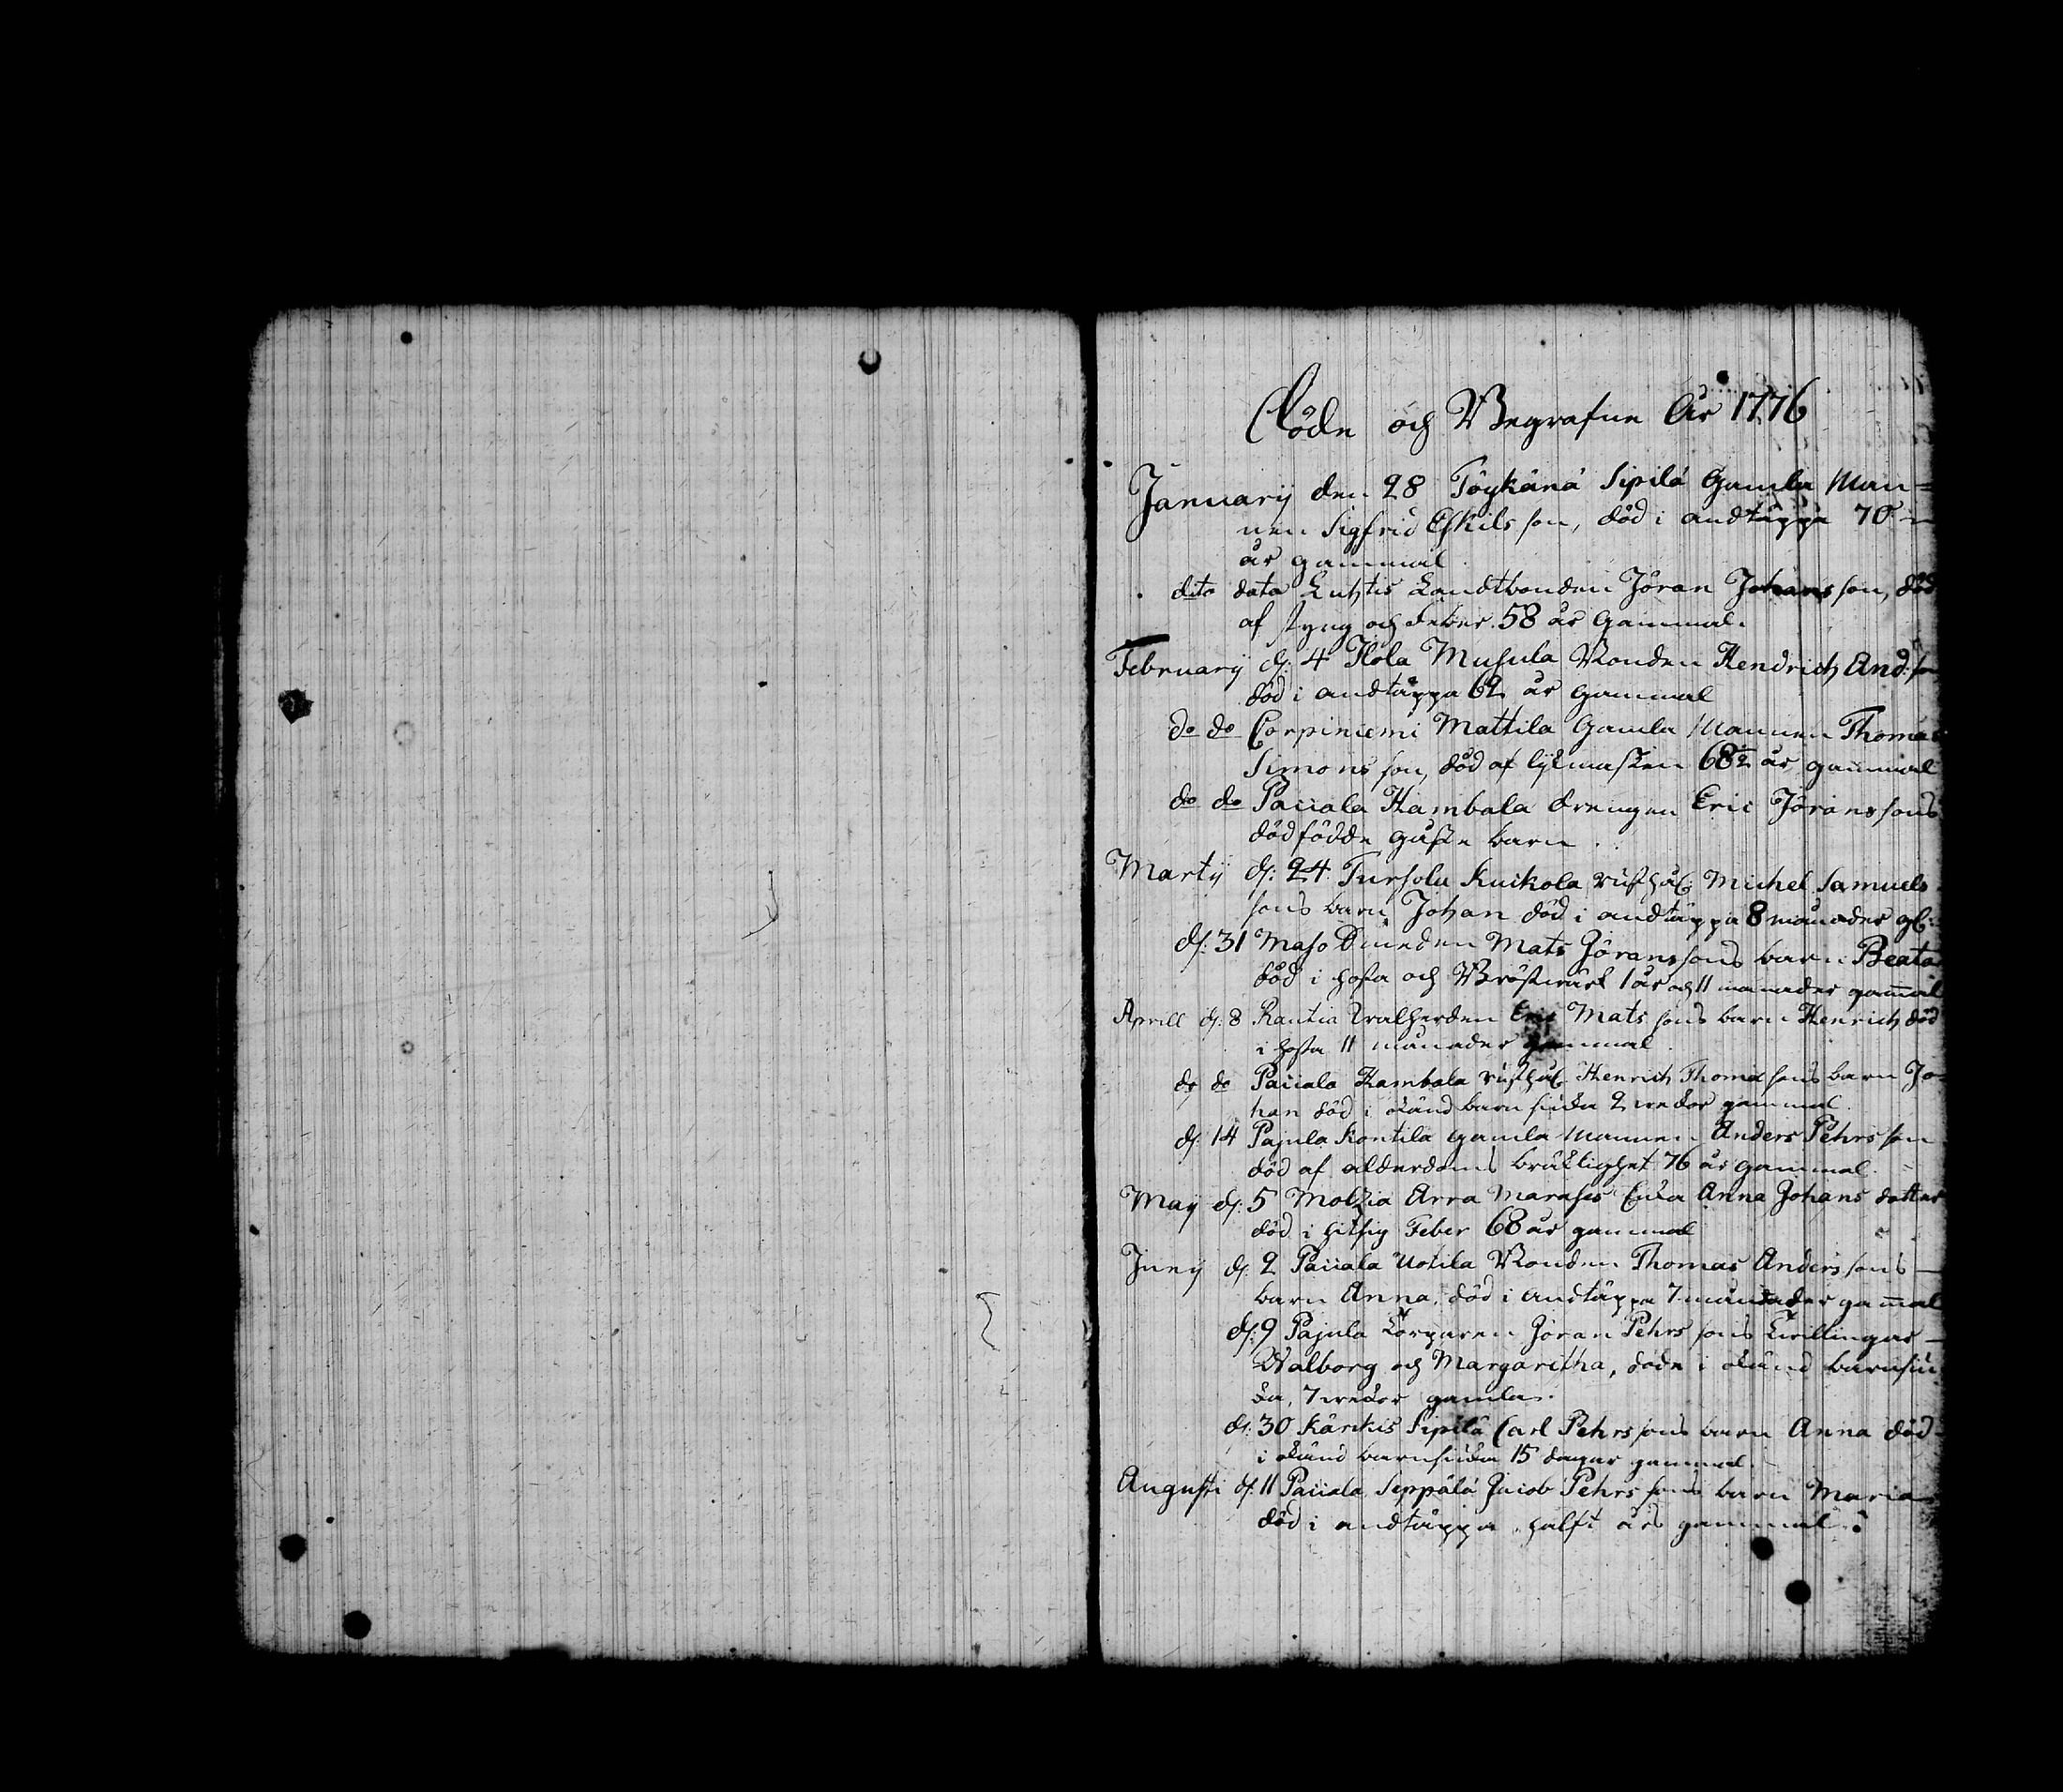 Döde och Begrafne År 1776
Januarij den 28 Töykänä Sipilä Gamla Man=
nen Sigfrid Eskils son, död i andtäppa 70
år gammal
dito dato Luhtis Landtbonden Jöran Johans son, död
af styng och feber 58 år Gammal.
Februarij d: 4 Ilola Musula Bonden Hendrich And: son
död i andtäppa 62 år gammal
do do Corpiniemi Mattila Gamla Mannen Thomas
Simons son, död af likmasken 68½ år gammal
do do Paiiala Hambala drengen Eric Jörans sons
dödfödde gåsse barn
Martij d: 24 Tursola Kuikola rusthål: Michel Samuels
sons barn Johan död i andtäppa 8 månader gl:
d: 31 Maso Smeden Mats Jörans sons barn Beata
död i hosta och Bröstwärk 1 år och 11 månader gammal
Aprill d: 8 Rautia Eric Mats sons barn Henrich död
i hosta 11 månader gammal
do do Paiiala Hambala rusthål: Henrich Thomæ sons barn Jo-
han död i okänd barn siuka 2 wekor gammal
d: 14 Pajula Kontila gamla Mannen Anders Pehrs son
död af ålderdoms bräklighet 76 år gammal
Maij d: 5 Arra Enka Anna Johans dotter
död i hitsig Feber 68 år gammal
Junij d: 2 Paiiala Uotila Bonden Thomas Anders sons
barn Anna, död i andtäppa 7 månader gammal
d: 9 Pajula Torparen Jöran Pehrs sons Twillingar
Walborg och Margaritha, döde i okänd barnsiu
ka, 7 wekor gamla.
d: 30 Kärikis Sipilä Carl Pehrs sons barn Anna död
i okänd barnsiuka 15 dagar gammal.
Augusti d: 11 Paiiala Seppälä Jacob Pehrs sons barn Maria
död i andtäppa halft års gammal.